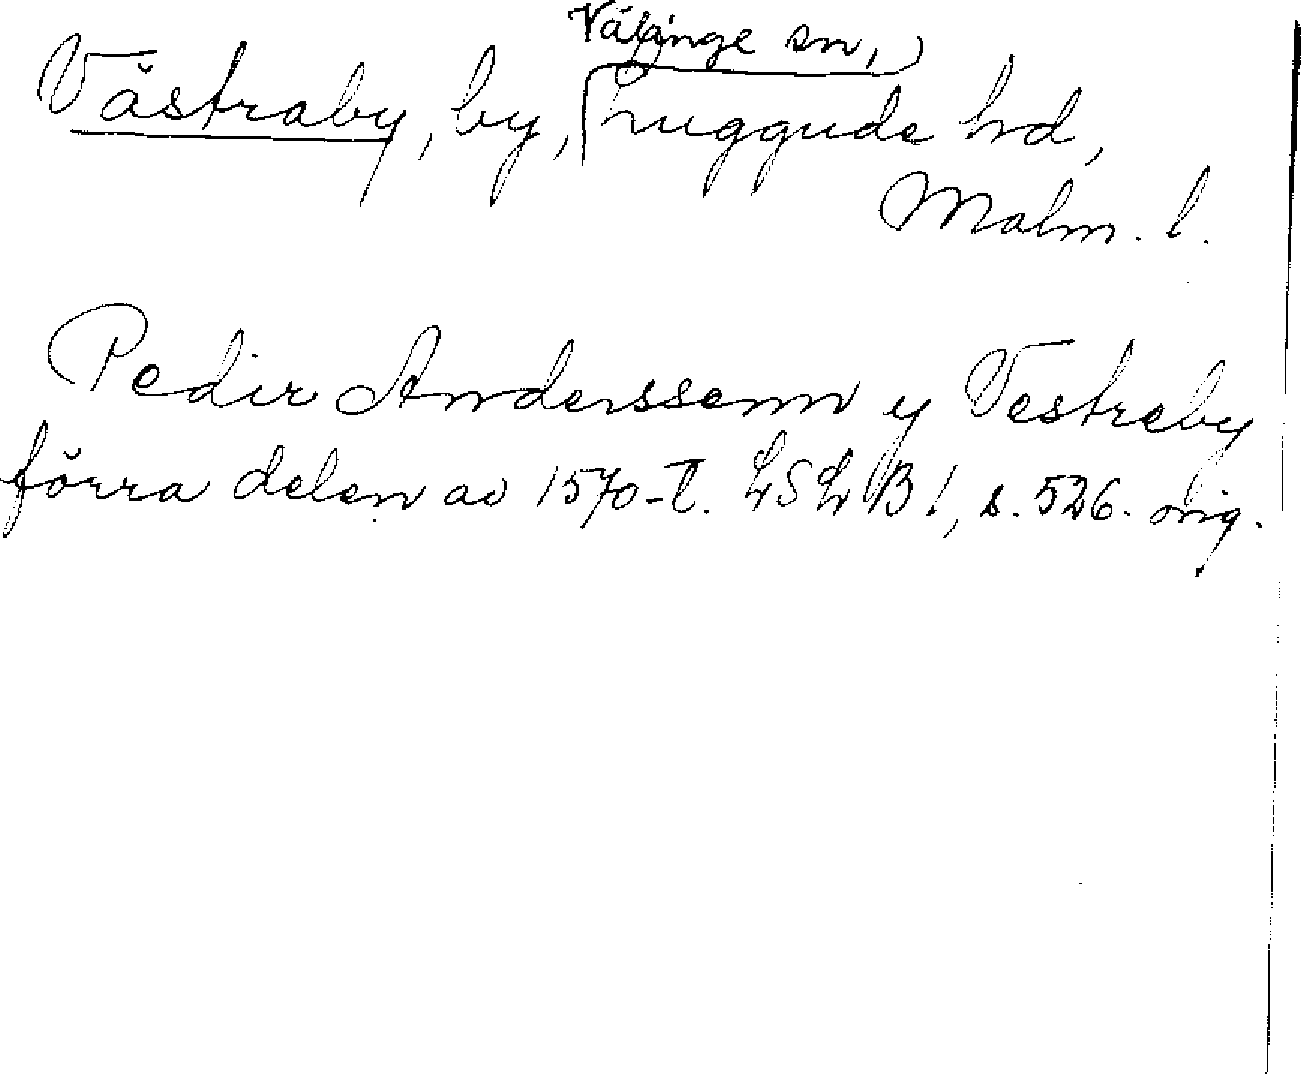 Välinge sn,
Västraby, by, Luggude hd,
Malm. l.
Pedir Anderssenn y Vestreby
förra delen av 1570-t. LSLB 1, s. 526. orig.